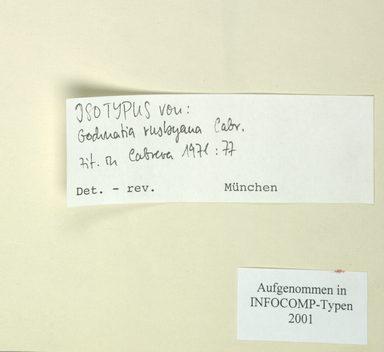 ISOTYPUS von:
Gochnatia rusbyana Cabr.
zit. in Cabrera 1971: 77
Det. - rev. München
Aufgenommen in
INFOCOMP-Typen
2001